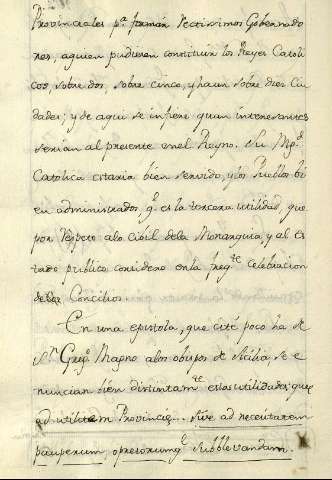 Provinciales pª. formar rectissimos Gobernado
res, aquien pudieren constituir los Reyes Catoli
cos, sobre dos, sobre cinco, y haun sobre diez Ciu
dades; y de aqui se infiere quan interesantes
serian al presente en el Reyno. Su Mgd.
Catolica estaria bien servido, y los Pueblos bi
en administrados, qe. es la tercera utilidad, que
por respeto alo Cibil dela Monarquia, y al es
tado publico considero en la freqte. celebracion
delos Concilios.
En una epistola, que cité poco ha de
Sn. Gregº. Magno alos obispos de Sicilia, se e
nuncian bien distintamte. estas utilidades; que
ad utilitatem Provinciæ... sive ad necessitatem
pauperum, opresorumqe. subblevandam.